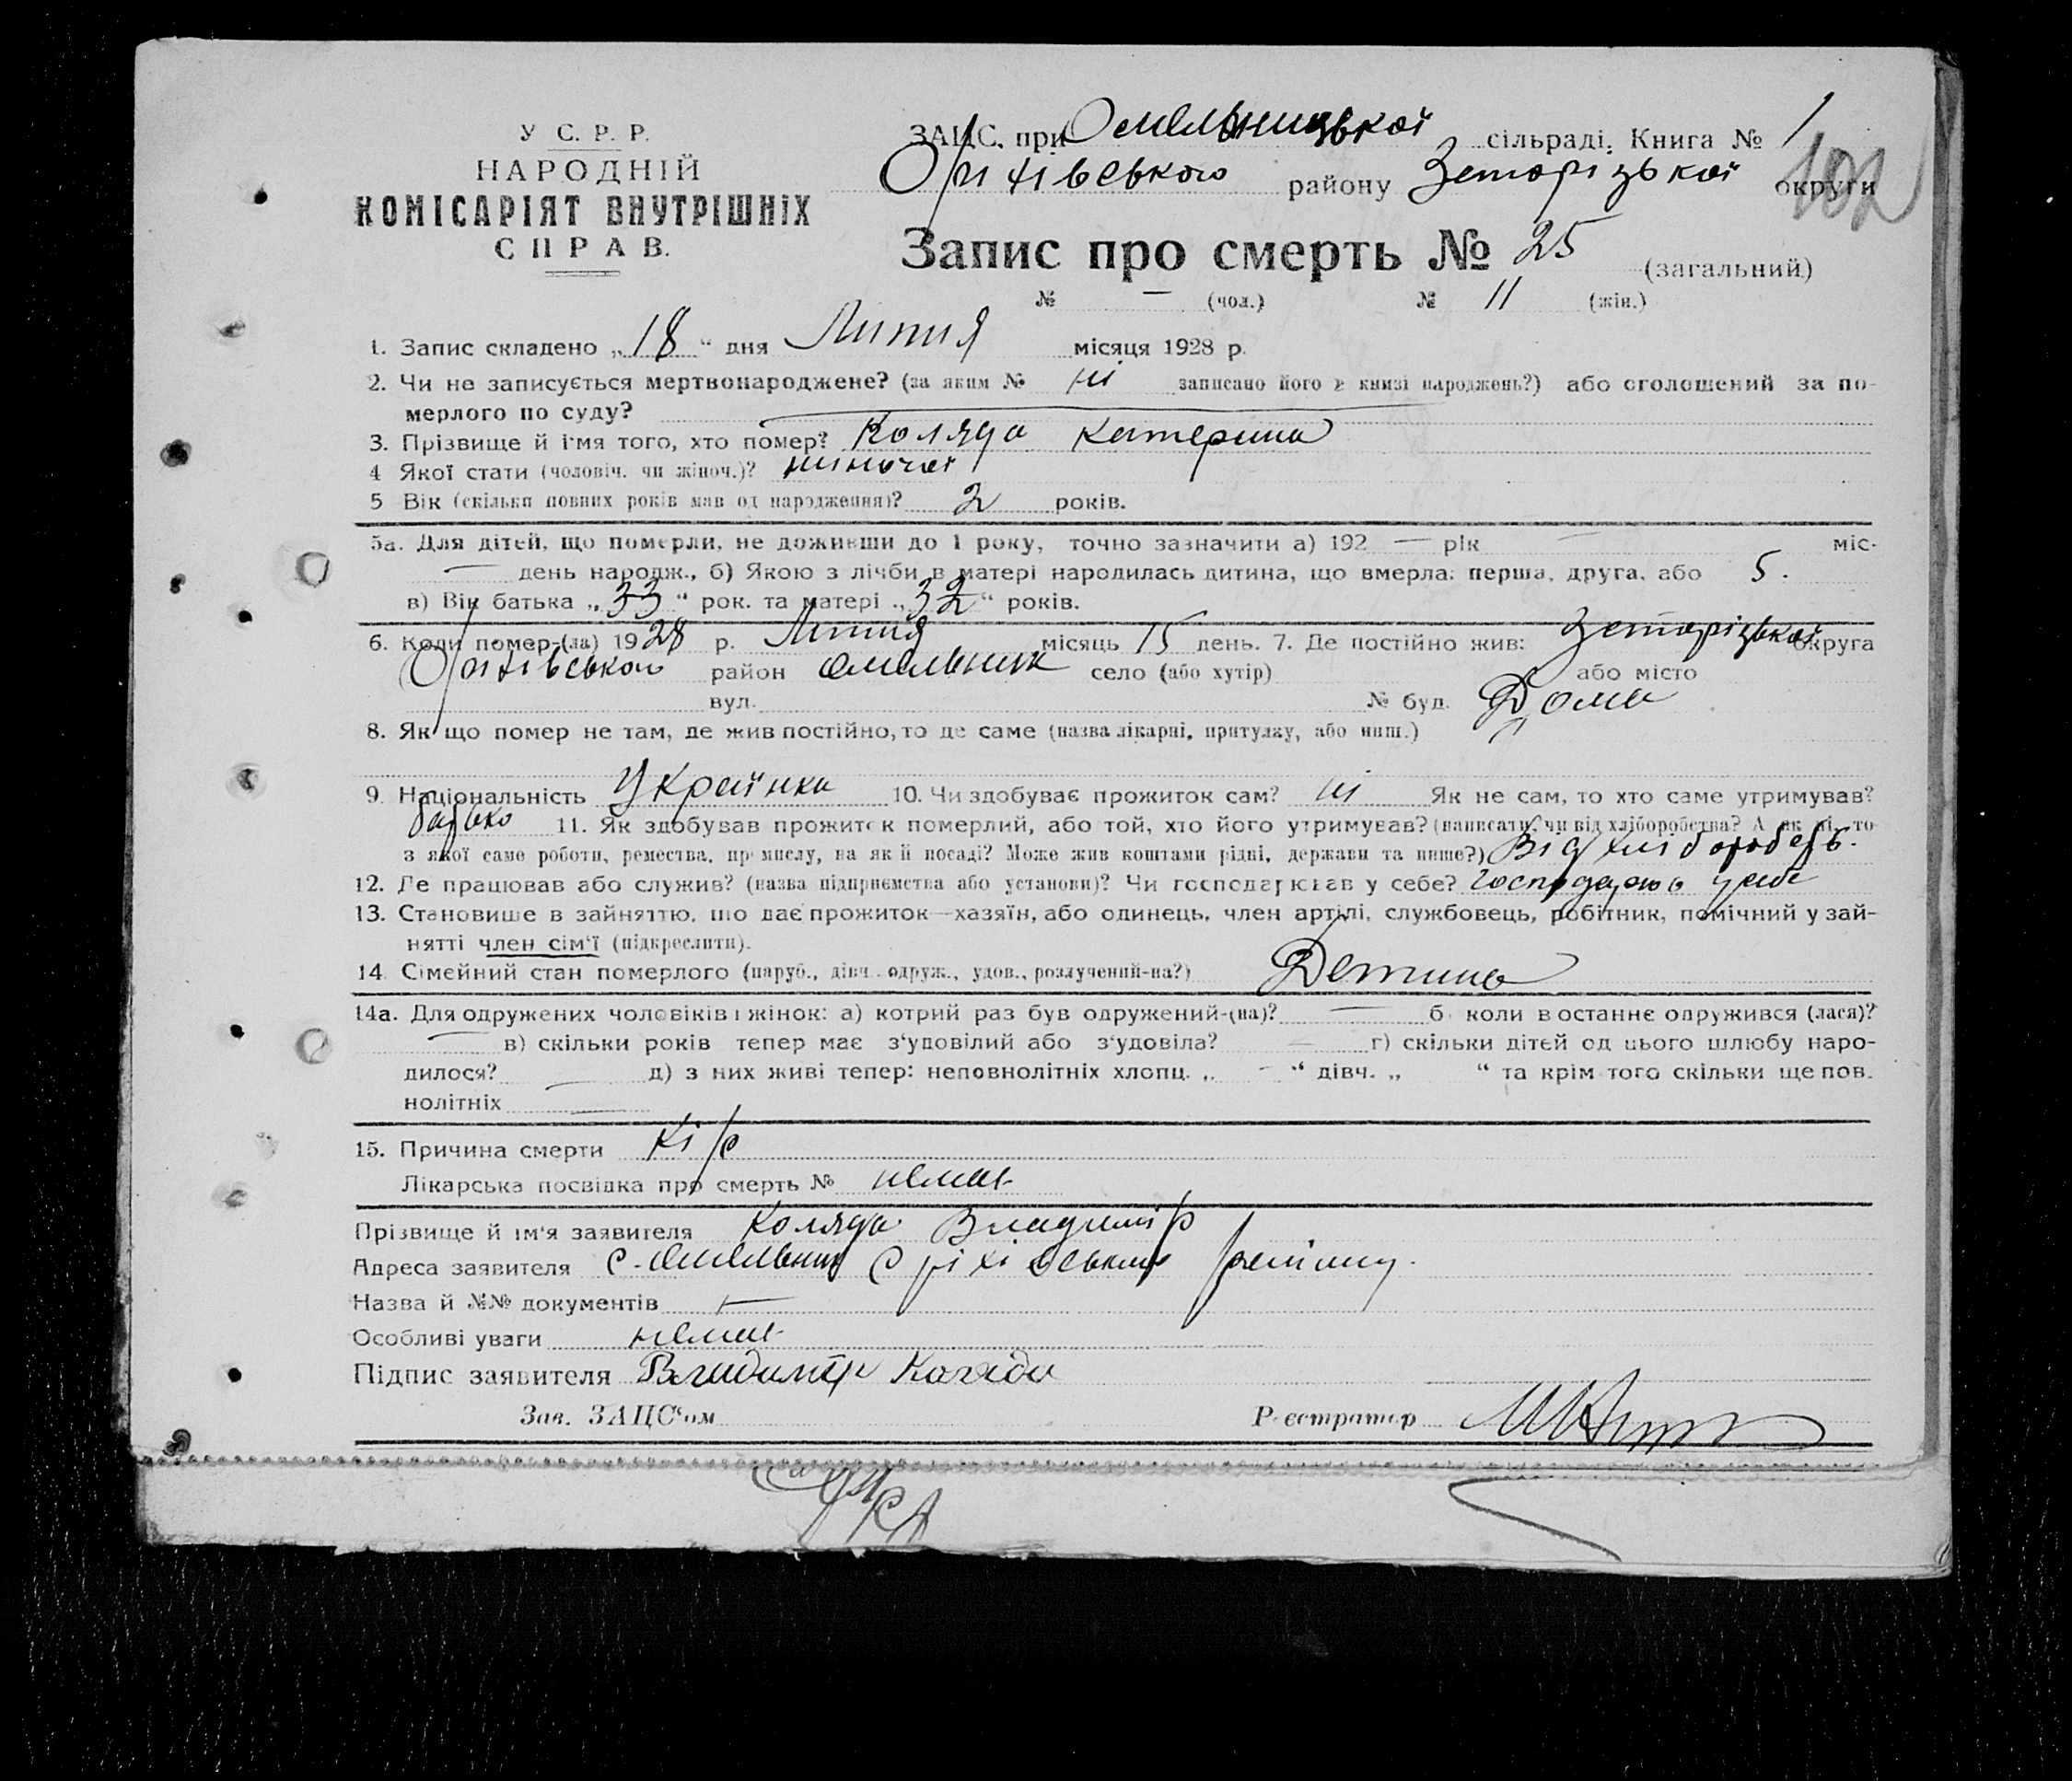 У С. Р. Р.
НАРОДНІЙ
КОМІСАРІЯТ ВНУТРІШНІХ
СПРАВ.
ЗАЦС, при Омельницької сільраді. Книга № 1
102
Оріхівського району Запорізької округи
Запис про смерть № 25 (загальний)
№ — (чол.) № 11 (жін.)
1. Запис складено „18“ дня Липня місяця 1928 р.
2. Чи не записується мертвонароджене? (за яким № ні записано його в книзі народжень?) або оголошений за по-
мерлого по суду?
3. Прізвище й ім'я того, хто помер? Коляда Катерина
4 Якої стати (чоловіч. чи жіноч.)? жіночої
5 Вік (скільки повних років мав од народження)? 2 років.
5а. Для дітей, що померли, не доживши до 1 року, точно зазначити а) 192 — рік — міс.
— день народж., б) Якою з лічби в матері народилась дитина, що вмерла: перша, друга, або 5.
в) Вік батька „33“ рок. та матері „32“ років.
6. Коли помер-(ла) 1928 р. Липня місяць 15 день. 7. Де постійно жив: Запорізької округа
Оріхівського район Омельник село (або хутір) або місто
вул. № буд. Дома
8. Як що помер не там, де жив постійно, то де саме (назва лікарні, притулку, або инш.)
9. Національність Українка 10. Чи здобуває прожиток сам? ні Як не сам, то хто саме утримував?
батько 11. Як здобував прожиток померлий, або той, хто його утримував? (написати, чи від хліборобства? А як ні, то
з якої саме роботи, ремества, промислу, на якій посаді? Може жив коштами рідні, держави та инше?) Від хліборобств.
12. Де працював або служив? (назва підприємства або установи)? Чи господарював у себе? господарював у себе
13. Становише в зайняттю, що дає прожиток—хазяїн, або одинець, член артілі, службовець, робітник, помічний у зай-
нятті член сім'ї (підкреслити).
14. Сімейний стан померлого (паруб., дівч. одруж., удов., розлучений-на?) Детина
14а. Для одружених чоловіків і жінок: а) котрий раз був одружений-(на)? — б коли в останнє одружився (лася)?
— в) скільки років тепер має з'удовілий або з'удовіла? — г) скільки дітей од цього шлюбу наро-
дилося? — д) з них живі тепер: неповнолітніх хлопц. „ - “ дівч. „ “ та крім того скільки ще пов.
нолітніх —
15. Причина смерти Кір
Лікарська посвідка про смерть № немає
Прізвище й ім'я заявителя Коляда Владимір
Адреса заявителя с. Омельник Оріхівського району.
Назва й №№ документів —
Особливі уваги немає
Підпис заявителя Владимір Коляда
Зав. ЗАЦС'ом Реєстратор